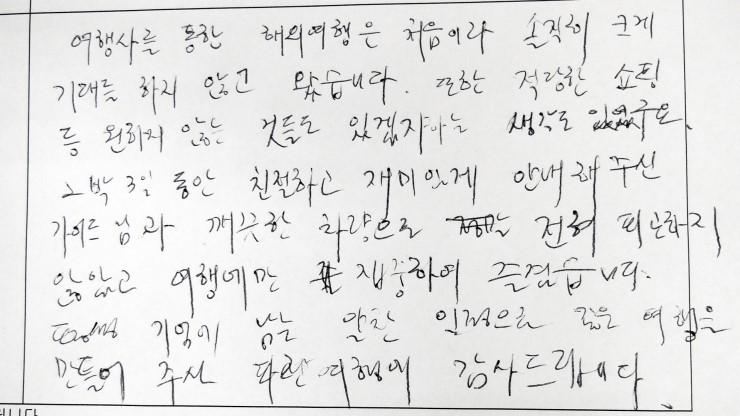 여행사를 통한 해외여행은 처음이라 솔직히 크게
기대를 하지 않고 왔습니다. 또한 적당한 쇼핑
등 원하지 않는 것들도 있겠지 하는 생각도 있었구요.
2박 3일 동안 친절하고 재미있게 안내해 주신
가이드님과 깨끗한 차량으로 전혀 피곤하지
않았고 여행에만 집중하여 즐겼습니다.
기억에 남는 알찬 일정으로 좋은 여행을
만들어 주신 파란여행에 감사드립니다.
니다